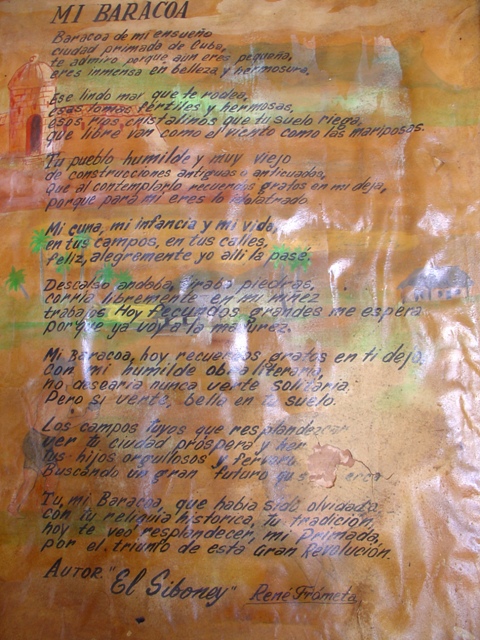 MI BARACOA
Baracoa de mi ensueño
ciudad primada de Cuba,
te admiro porque aun eres pequeña,
eres inmensa en belleza y hermosura.
Ese lindo mar que te rodea,
esas lomas fértiles y hermosas,
esos rios cristalinos que tu suelo riega,
que libre van como el viento como las mariposas.
Tu pueblo humilde y muy viejo
de construcciones antiguas o anticuadas,
que al contemplarlo recuerdos gratos en mi deja,
porque para mi eres lo idolatrado
Mi cuna, mi infancia y mi vida,
en tus campos, en tus calles,
feliz, alegremente yo alli la pasé.
Descalso andaba, tiraba piedras,
corria libremente en mi niñez
trabajos Hoy fecundos grandes me espera
porque ya voy a la madurez.
Mi Baracoa, hoy recuerdos, gratos en ti dejo,
con mi humilde obra literaria,
no desearia nunca verte solitaria
Pero si verte, bello en tu suelo.
Los campos tuyos que resplandezcan
ver tu ciudad próspera y her
Tus hijos orgullosos y fervoro
Buscando un gran futuro qu
Tu, mi Baracoa, que habia sido olvidada,
con tu reliquia historica, tu tradición,
hoy te veo resplandecer, mi Primada,
por el triunfo de esta Gran Revolución.
AUTOR. "El Siboney" René Frómeta